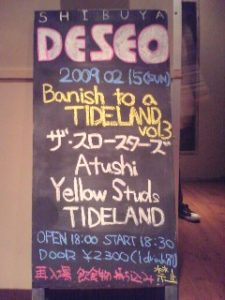 SHIBUYA
DESEO
2009 02 15(SUN)
Banish to a
TIDELAND
vol3
ザ・スロースターズ
Atushi
Yellow Studs
TIDELAND
OPEN 18:00 START 18:30
DOOR ¥2300 (1drink別)
再入場 飲食物 持ち込み